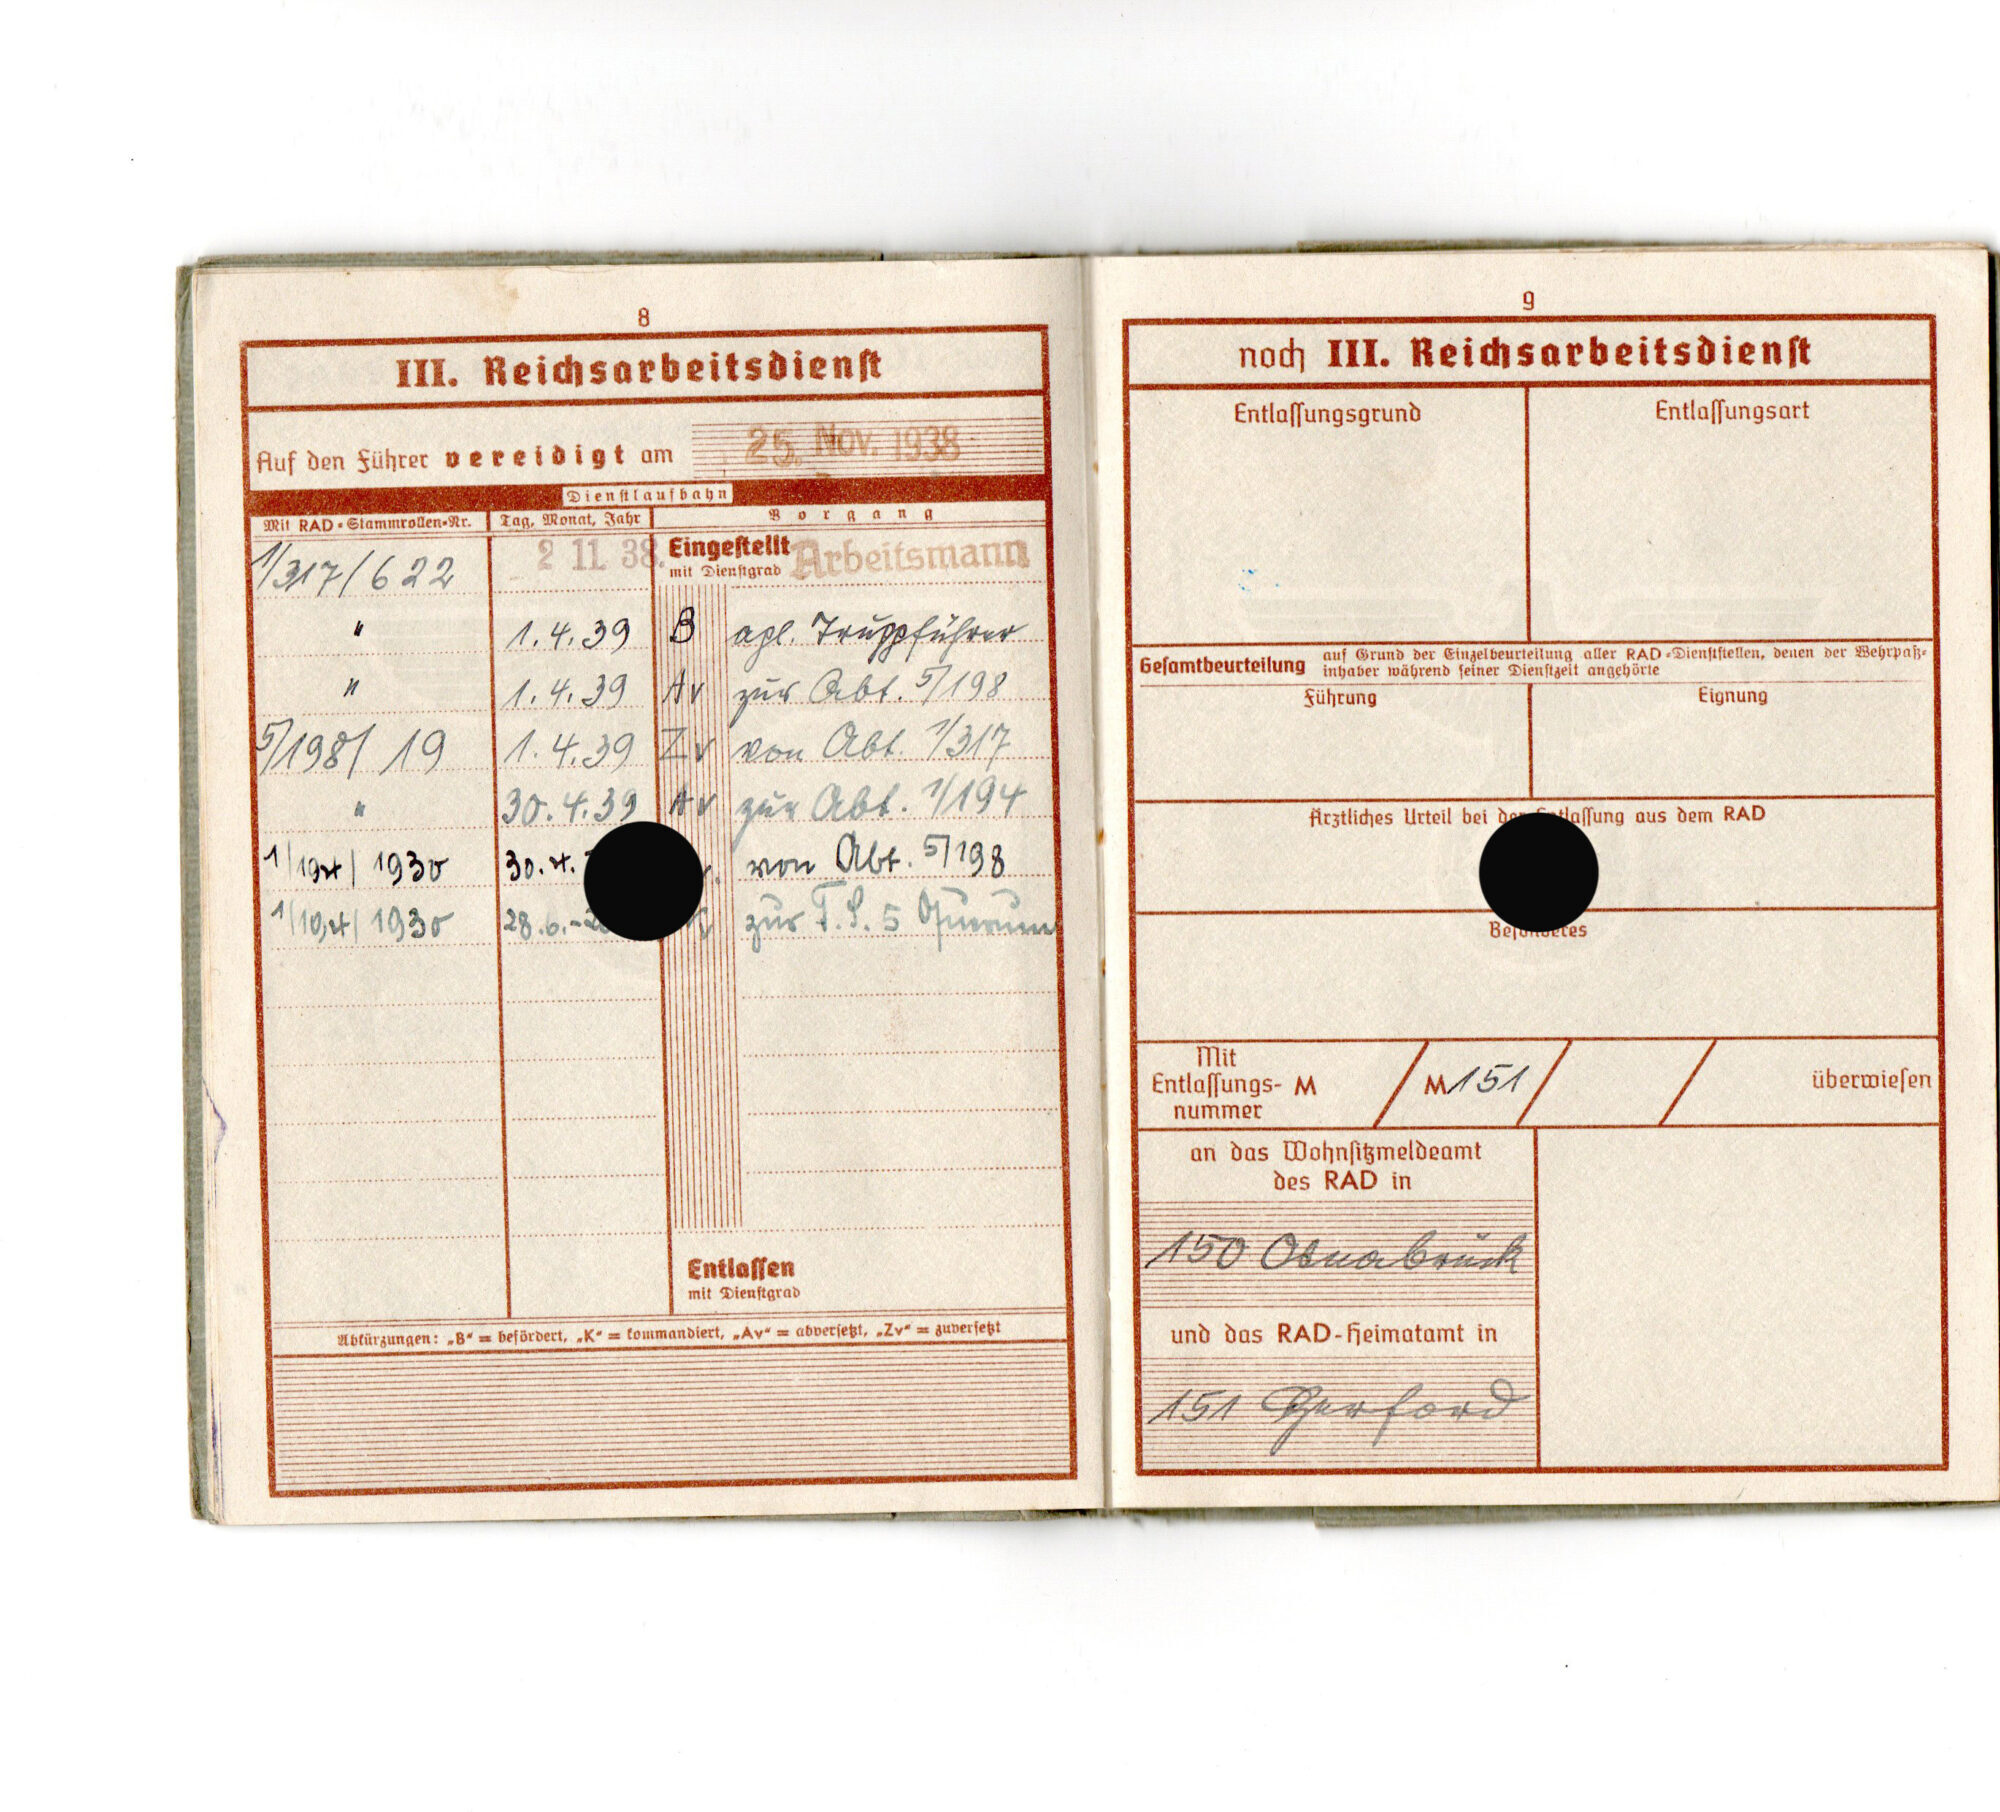 8
III. Reichsarbeitsdienst
Auf den Führer vereidigt am 25. Nov. 1938
Dienstlaufbahn
Mit RAD-Stammrollen-Nr. Tag, Monat, Jahr Vorgang
1/317/622 2 11 38. Eingestellt Arbeitsmann
mit Dienstgrad
" 1.4.39 B apl. Truppführer
" 1.4.39 Av zur Abt. 5/198
5/198/ 19 1.4.39 Zv von Abt. 1/317
" 30.4.39 Av zur Abt. 1/194
1/194/ 1930 30.4. von Abt. 5/198
1/194/ 1930 28.6.- K zur T.S. 5 Querum
Entlassen
mit Dienstgrad
Abkürzungen: „B“ = befördert, „K“ = kommandiert, „Av“ = abversetzt, „Zv“ = zuversetzt
9
noch III. Reichsarbeitsdienst
Entlassungsgrund Entlassungsart
Gesamtbeurteilung auf Grund der Einzelbeurteilung aller RAD-Dienststellen, denen der Wehrpaß-
inhaber während seiner Dienstzeit angehörte
Führung Eignung
Ärztliches Urteil bei der Entlassung aus dem RAD
Besonderes
Mit
Entlassungs- M / M 151 / / überwiesen
nummer
an das Wohnsitzmeldeamt
des RAD in
150 Osnabrück
und das RAD-Heimatamt in
151 Herford